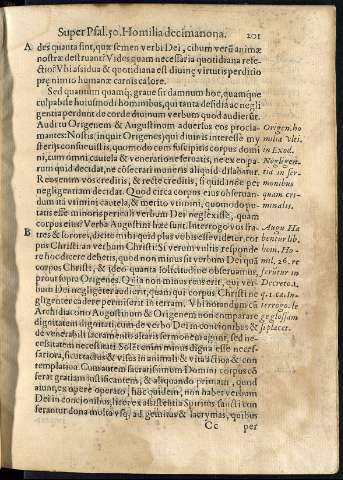 Super Psal. 50. Homilia decimanona. 201
A des quanta sint, quæ semen verbi Dei, cibum verũ animæ
nostræ destruant? Vides quam necessaria quotidiana refe-
ctio? Vbi assidua & quotidiana est diuinę virtutis perditio
prę nimio humanæ carnis calore.
Sed quantum quamq; graue sit damnum hoc, quamque
culpabile huiusmodi hominibus, qui tanta desidia ac negli
gentia perdunt de corde diuinum verbum quod audierũt.
Auditu Origenem & Augustinum aduersus eos procla-
mantes: Nostis inquit Origenes qui diuinis interesse my
sterijs consueuistis, quomodo cum suscipitis corpus domi
ni, cum omni cautela & veneratione seruatis, ne ex eo pa-
rum quid decidat, ne cōsecrati muneris aliquid dilabatur
Reos enim vos creditis, & recte creditis, si quid inde per
negligentiam decidat. Quod si circa corpus eius obseruan-
dum ita vtimini cautela, & merito vtimini, quomodo pu-
tatis esse minoris periculi verbum Dei neglexisse, quam
corpus eius? Verba Augustini hæc sunt: Interrogo vos fra-
B tres & sorores, dicite mihi quid plus vobis esse videtur, cor
pus Christi an verbum Christi? Si verum vultis responde
re hoc dicere debetis, quod non minus sit verbum Dei quā
corpus Christi, & ideo quanta solicitudine obseruamus,
prout supra Origenes. Quia non minus reus erit, qui ver-
bum Dei negligenter audierit, quam qui corpus Christi ne
gligenter cadere permiserit in terram. Vbi notandum cū
Archidiacono Augustinum & Origenem non comparare
dignitatem dignitati, cum de verbo Dei in concionibus &
de venerabili sacramento altaris sermonem agunt, sed ne-
cessitatem necessitati. Solet enim minus digna esse neces-
saria, sicut tactus & visus in animali & vita actiua & con
templatiua. Cum autem sacratissimum Domini corpus cō
ferat gratiam iustificantem, & aliquando primam, quod
aiunt, ex opere operato, hoc quidem, non habet verbum
Dei in concionibus, licet ex assistentia Spiritus sancti con
ferantur dona multo vsq; ad gemitus & lacrymas, quibus
Cc per
Origen. ho
milia
in Exod.
Negligen-
tia in ser-
monibus
quam cri-
minalis.
Augu. Ha
bentur lib.
hom. Ho-
mil. 26. re
ferūtur in
Decreto.
q. 1. ca. In-
terrogo.
glossam